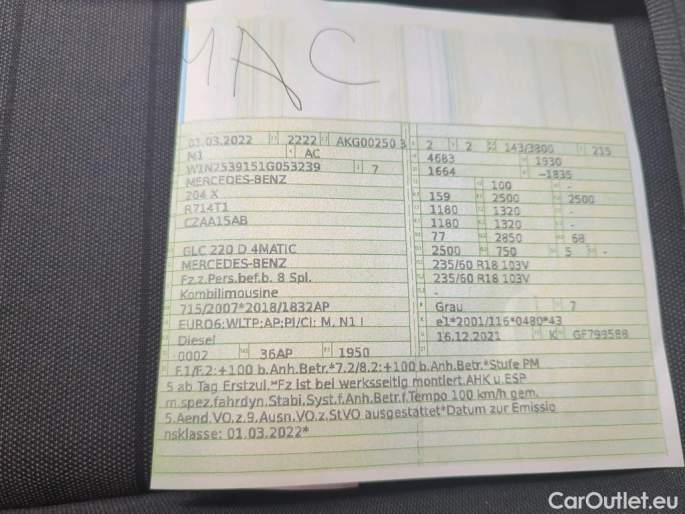 MAC
01.03.2022 2222 AKG00250 3
M1 AC
W1N2539151G053239 7
MERCEDES-BENZ
204 X
R714T1
CZAA15AB
GLC 220 D 4MATIC
MERCEDES-BENZ
Fz.z.Pers.bef.b. 8 Spl.
Kombilimousine
715/2007*2018/1832AP
EURO6;WLTP;AP;PI/CI; M, N1 I
Diesel
0002 36AP 1950
2 2 143/3800 215
4683 1930
1664 -1835
100 -
159 2500 2500
1180 1320 -
1180 1320 -
77 2850 68
2500 750 5 -
235/60 R18 103V
235/60 R18 103V
-
Grau 7
e1*2001/116*0480*43
16.12.2021 K GF799588
F.1/F.2:+100 b.Anh.Betr.*7.2/8.2:+100 b.Anh.Betr.*Stufe PM
5 ab Tag Erstzul.*Fz ist bei werksseitig montiert.AHK u.ESP
m.spez.fahrdyn.Stabi.Syst.f.Anh.Betr.f.Tempo 100 km/h gem.
5.Aend.VO.z.9.Ausn.VO.z.StVO ausgestattet*Datum zur Emissio
nsklasse: 01.03.2022*
CarOutlet.eu